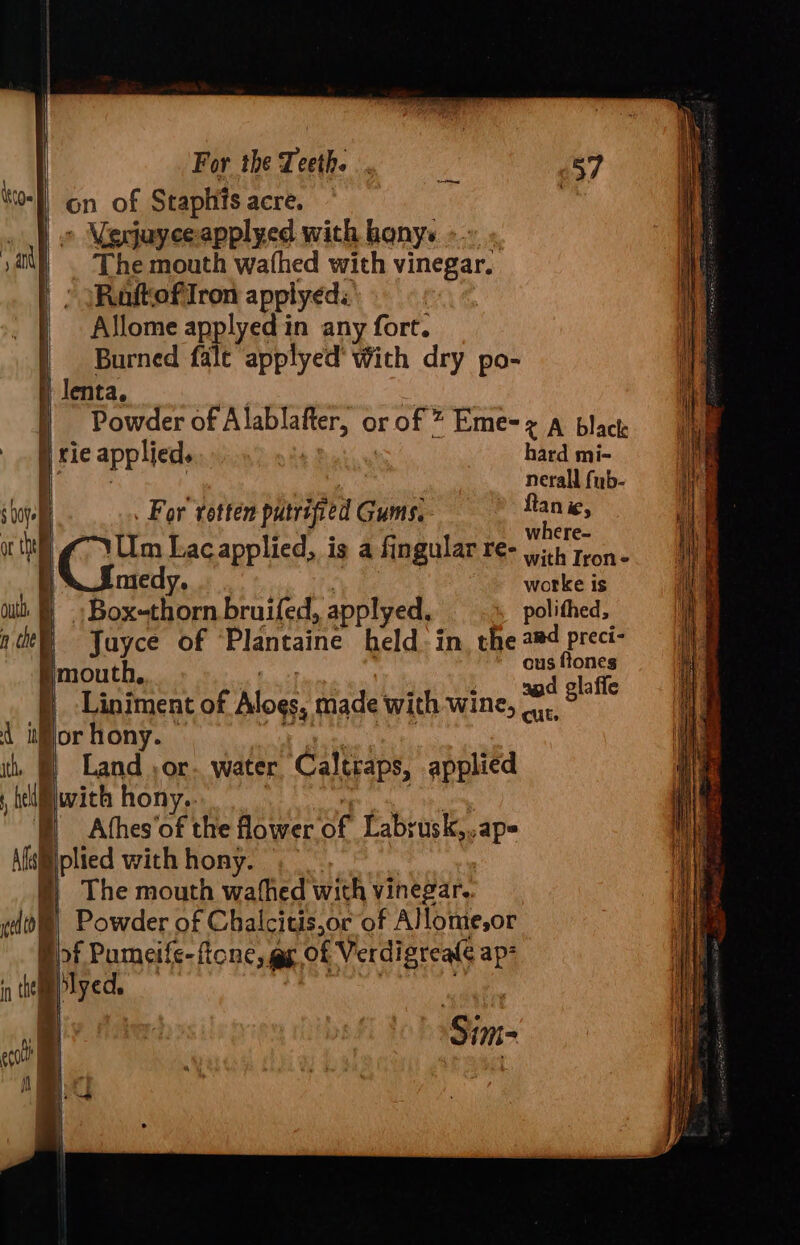 For the Teeth. 57
on of Staphisacre.
Verjuyce applyed with hony.
The mouth waſhed with vinegar.
Ruſt of Iron applyed.
Allome applyed in any ſort.
Burned ſalt applyed with dry po-
lenta.
Powder of Alablaſter, or of * Eme-
rie applied.
* A black
hard mi-
nerall ſub-
ſtance,
where-
with Iron-
worke is
poliſhed,
and preci-
ous ſtones
and glaſſe
cut.
For rotten putrified Gums.
GUm Lac applied, is a ſingular re-
medy.
Box-thorn bruiſed, applyed.
Juyce of Plantaine held in the
mouth.
Liniment of Aloes, made with wine,
or hony.
Land or water Caltraps, applied
with hony.
Aſhes of the flower of Labrusk, ap-
plied with hony.
The mouth waſhed with vinegar.
Powder of Chalcitis, or of Allome, or
of Pumeiſe-ſtone, or of Verdigreaſe ap-
plyed.
Sim-